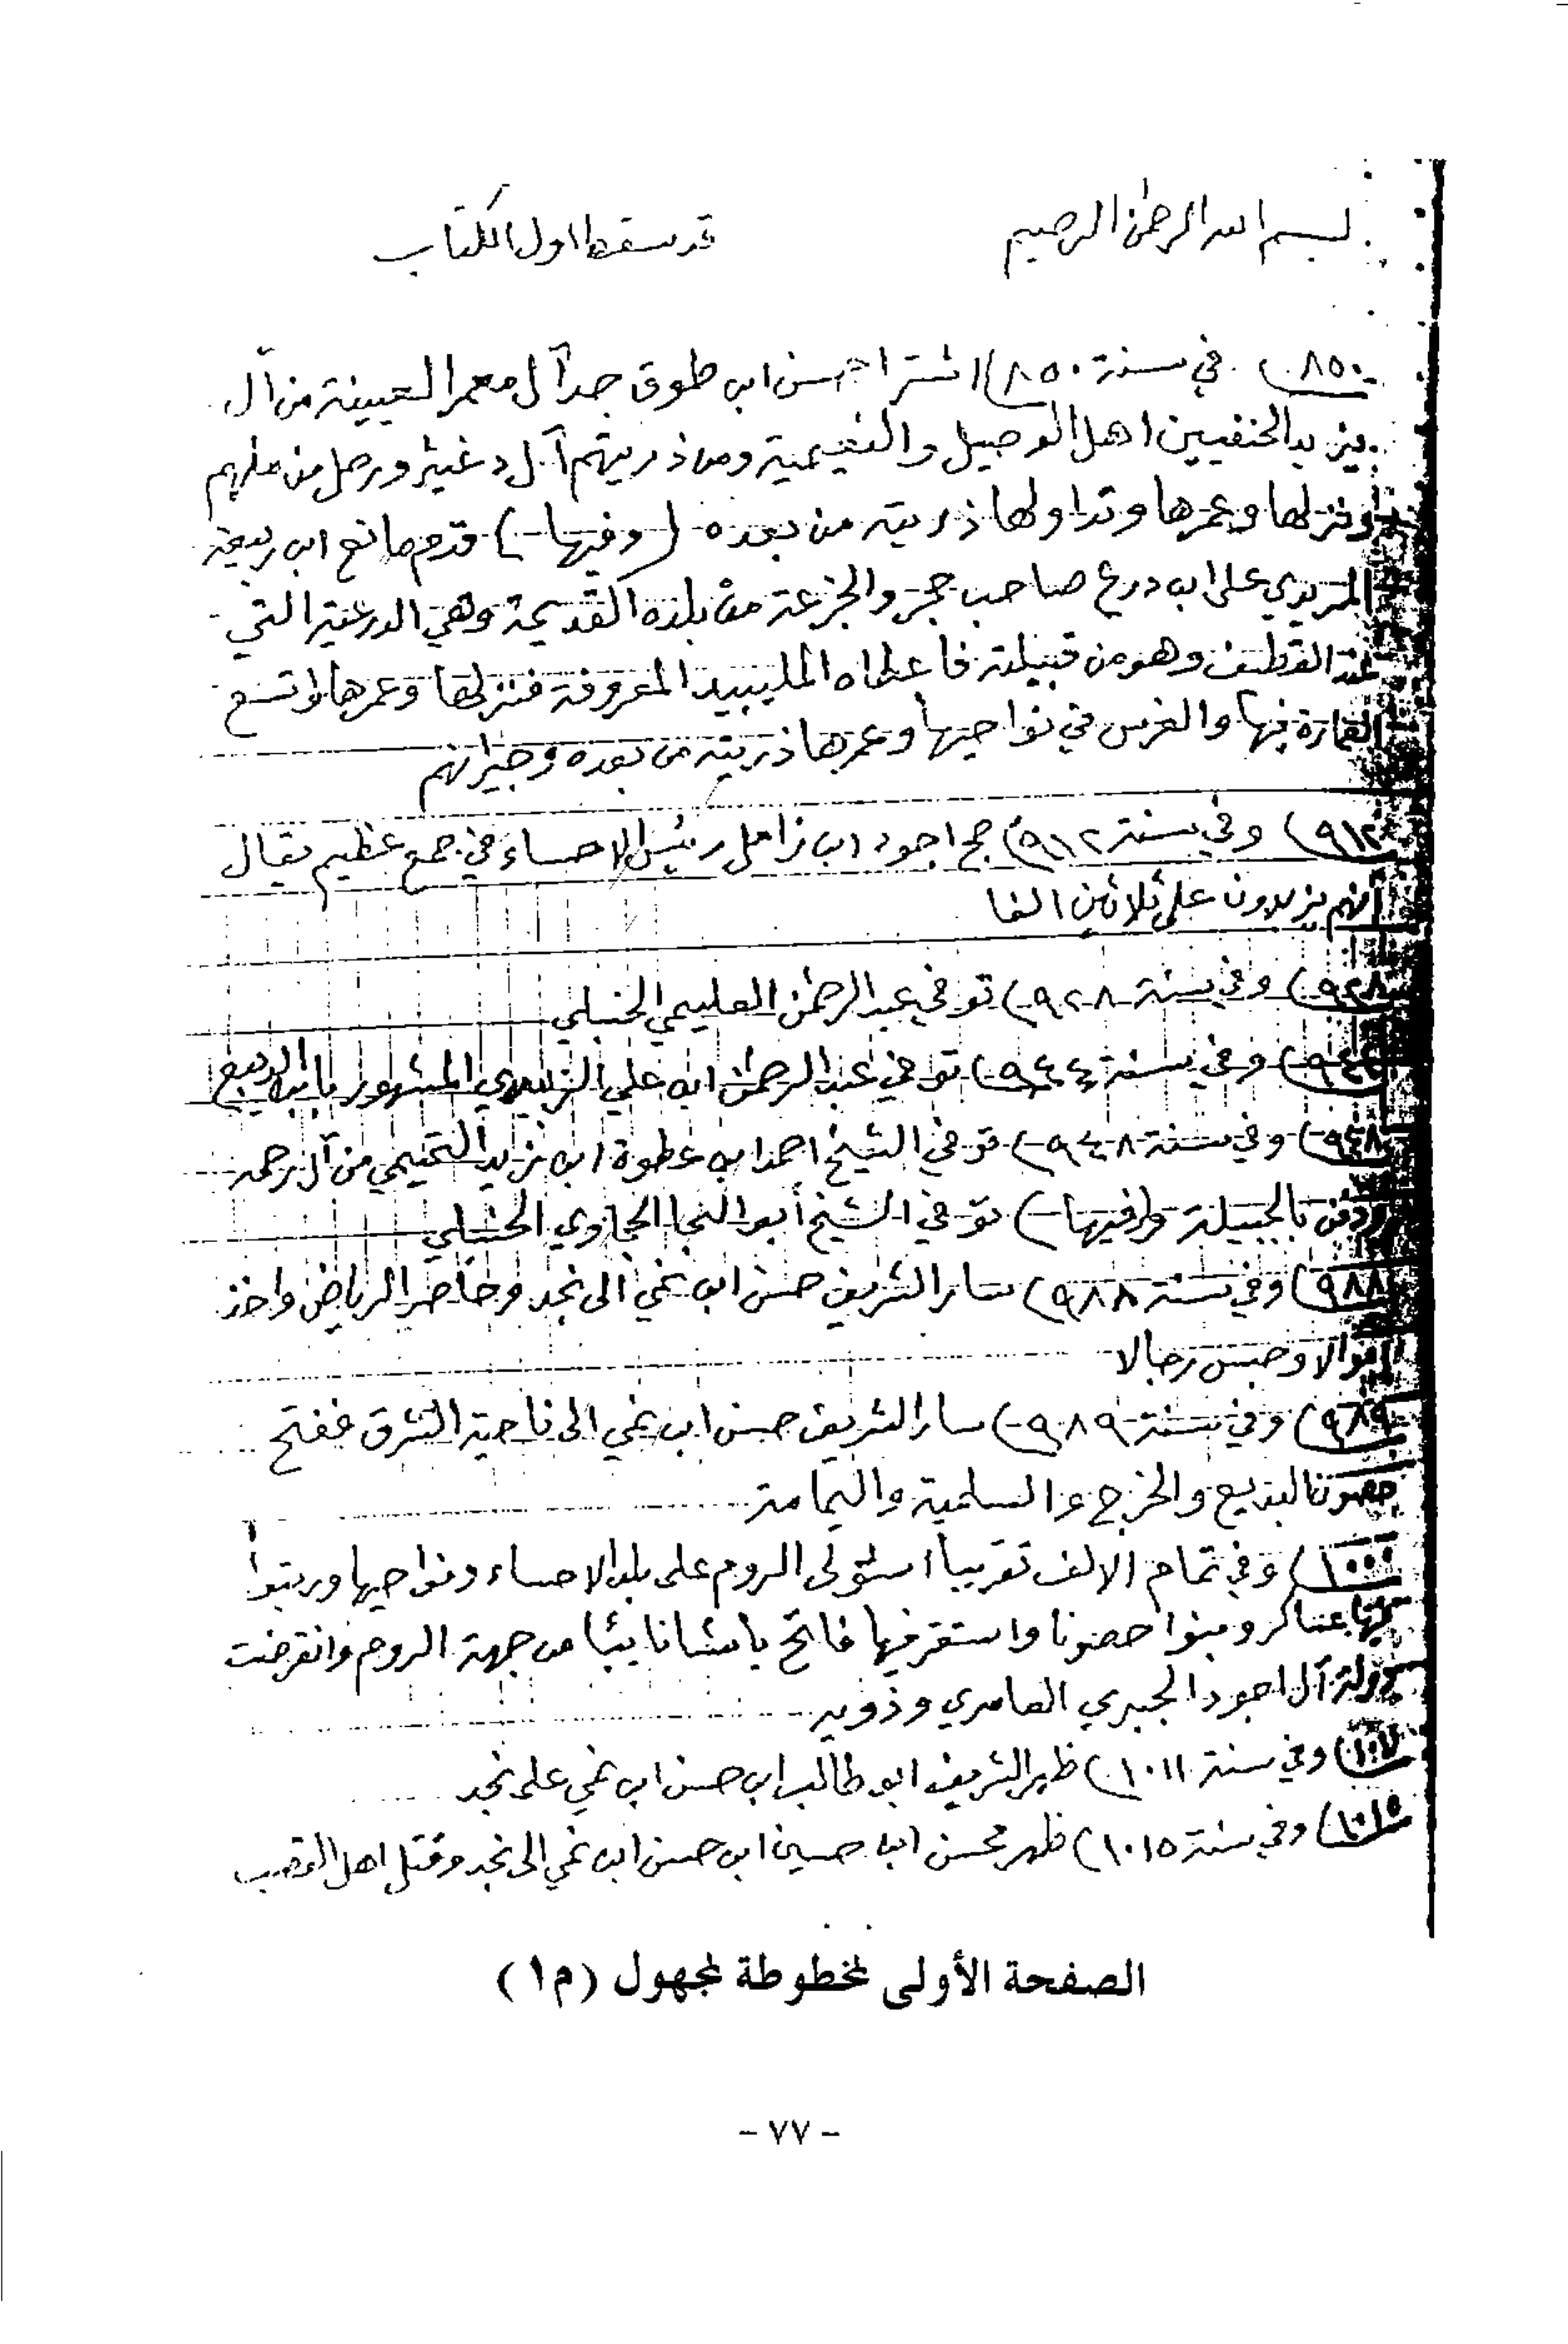 بسم الله الرحمن الرحيم
قد سقط اول الكتاب
٨٥٠) في سنة ٨٥٠) اشترا حسن ابن طوق جد آل معمر العيينة من آل
يزيد الحنفيين اهل الوصيل والنعيمية ومن ذريتهم آل دغيثر ورحل من ملهم
ونزلها وعمرها وتداولها ذريته من بعده (وفيها) قدم مانع ابن ربيعة
المريدي على ابن درع صاحب حجر والجزعة من بلده القديمة وهي الدرعية التي
عند القطيف وهو من قبيلته فاعطاه المليبيد المعروفة فنزلها وعمرها واتسع
العمارة فيها والغرس في نواحيها وعمرها ذريته من بعده وجيرانهم
٩١٢) وفي سنة ٩١٢) حج اجود ابن زامل رئيس الاحساء في جمع عظيم يقال
انهم يزيدون على ثلاثين الفا
٩٢٨) وفي سنة ٩٢٨) توفي عبد الرحمن العليمي الحنبلي
٩٤٤) وفي سنة ٩٤٤) توفي عبد الرحمن ابن علي الزبيدي المشهور بابن الديبع
٩٤٨) وفي سنة ٩٤٨) توفي الشيخ احمد ابن عطوة ابن زيد التميمي من آل رحمه
ودفن بالجبيلة وفيها) توفي الشيخ أبو النجا الحجاوي الحنبلي
٩٨٨) وفي سنة ٩٨٨) سار الشريف حسن ابن نمي الى نجد وحاصر الرياض واخذ
اموالا وحبس رجالا
٩٨٩) وفي سنة ٩٨٩) سار الشريف حسن ابن نمي الى ناحية الشرق ففتح
حصون البديع والخرج والسلمية واليمامة
١٠٠٠) وفي تمام الالف تقريبا استولى الروم على بلد الاحساء ونواحيها ورتبوا
فيها عساكر وبنوا حصونا واستقر فيها فاتح باشا نايبا من جهة الروم وانقرضت
دولة آل اجود الجبري العامري وذويه
١٠١١) وفي سنة ١٠١١) ظهر الشريف ابو طالب ابن حسن ابن نمي على نجد
١٠١٥) وفي سنة ١٠١٥) ظهر محسن ابن حسين ابن حسن ابن نمي الى نجد وقتل اهل القصب
الصفحة الأولى لمخطوطة لمجهول (م١)
- ٧٧ -